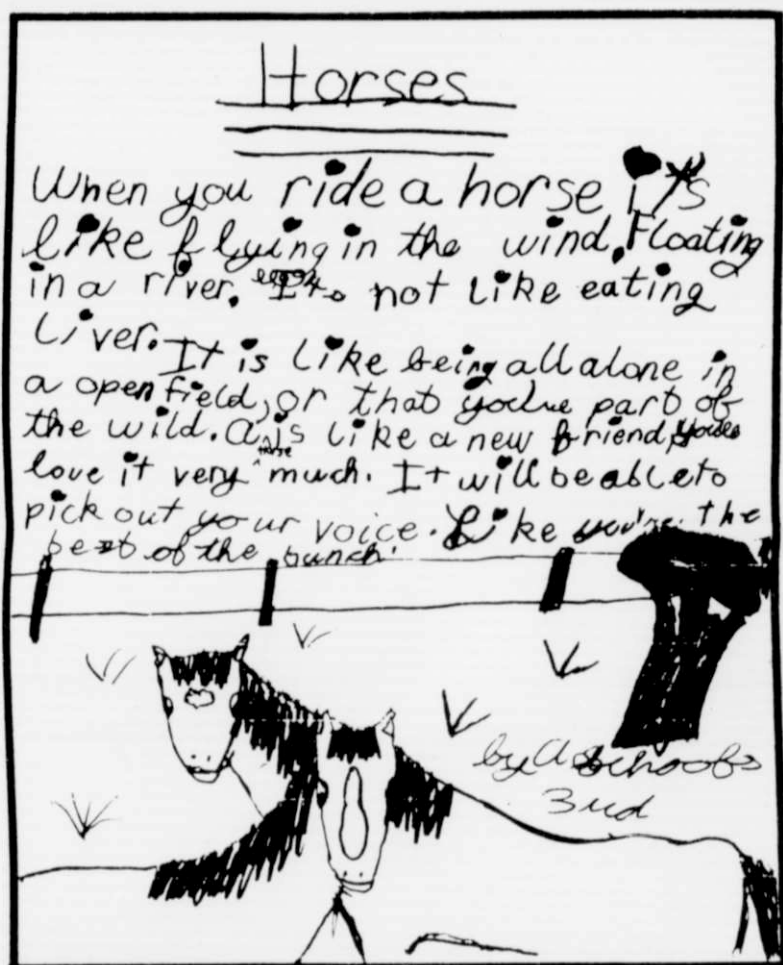 Horses
When you ride a horse it's
like flying in the wind, Floating
in a river. It's not like eating
Liver. It is like being all alone in
a open field, or that you're part of
the wild. A horse is like a new friend, you
love it very much. It will be able to
pick out your voice. Like you're the
best of the bunch.
by A Schoofs
3rd